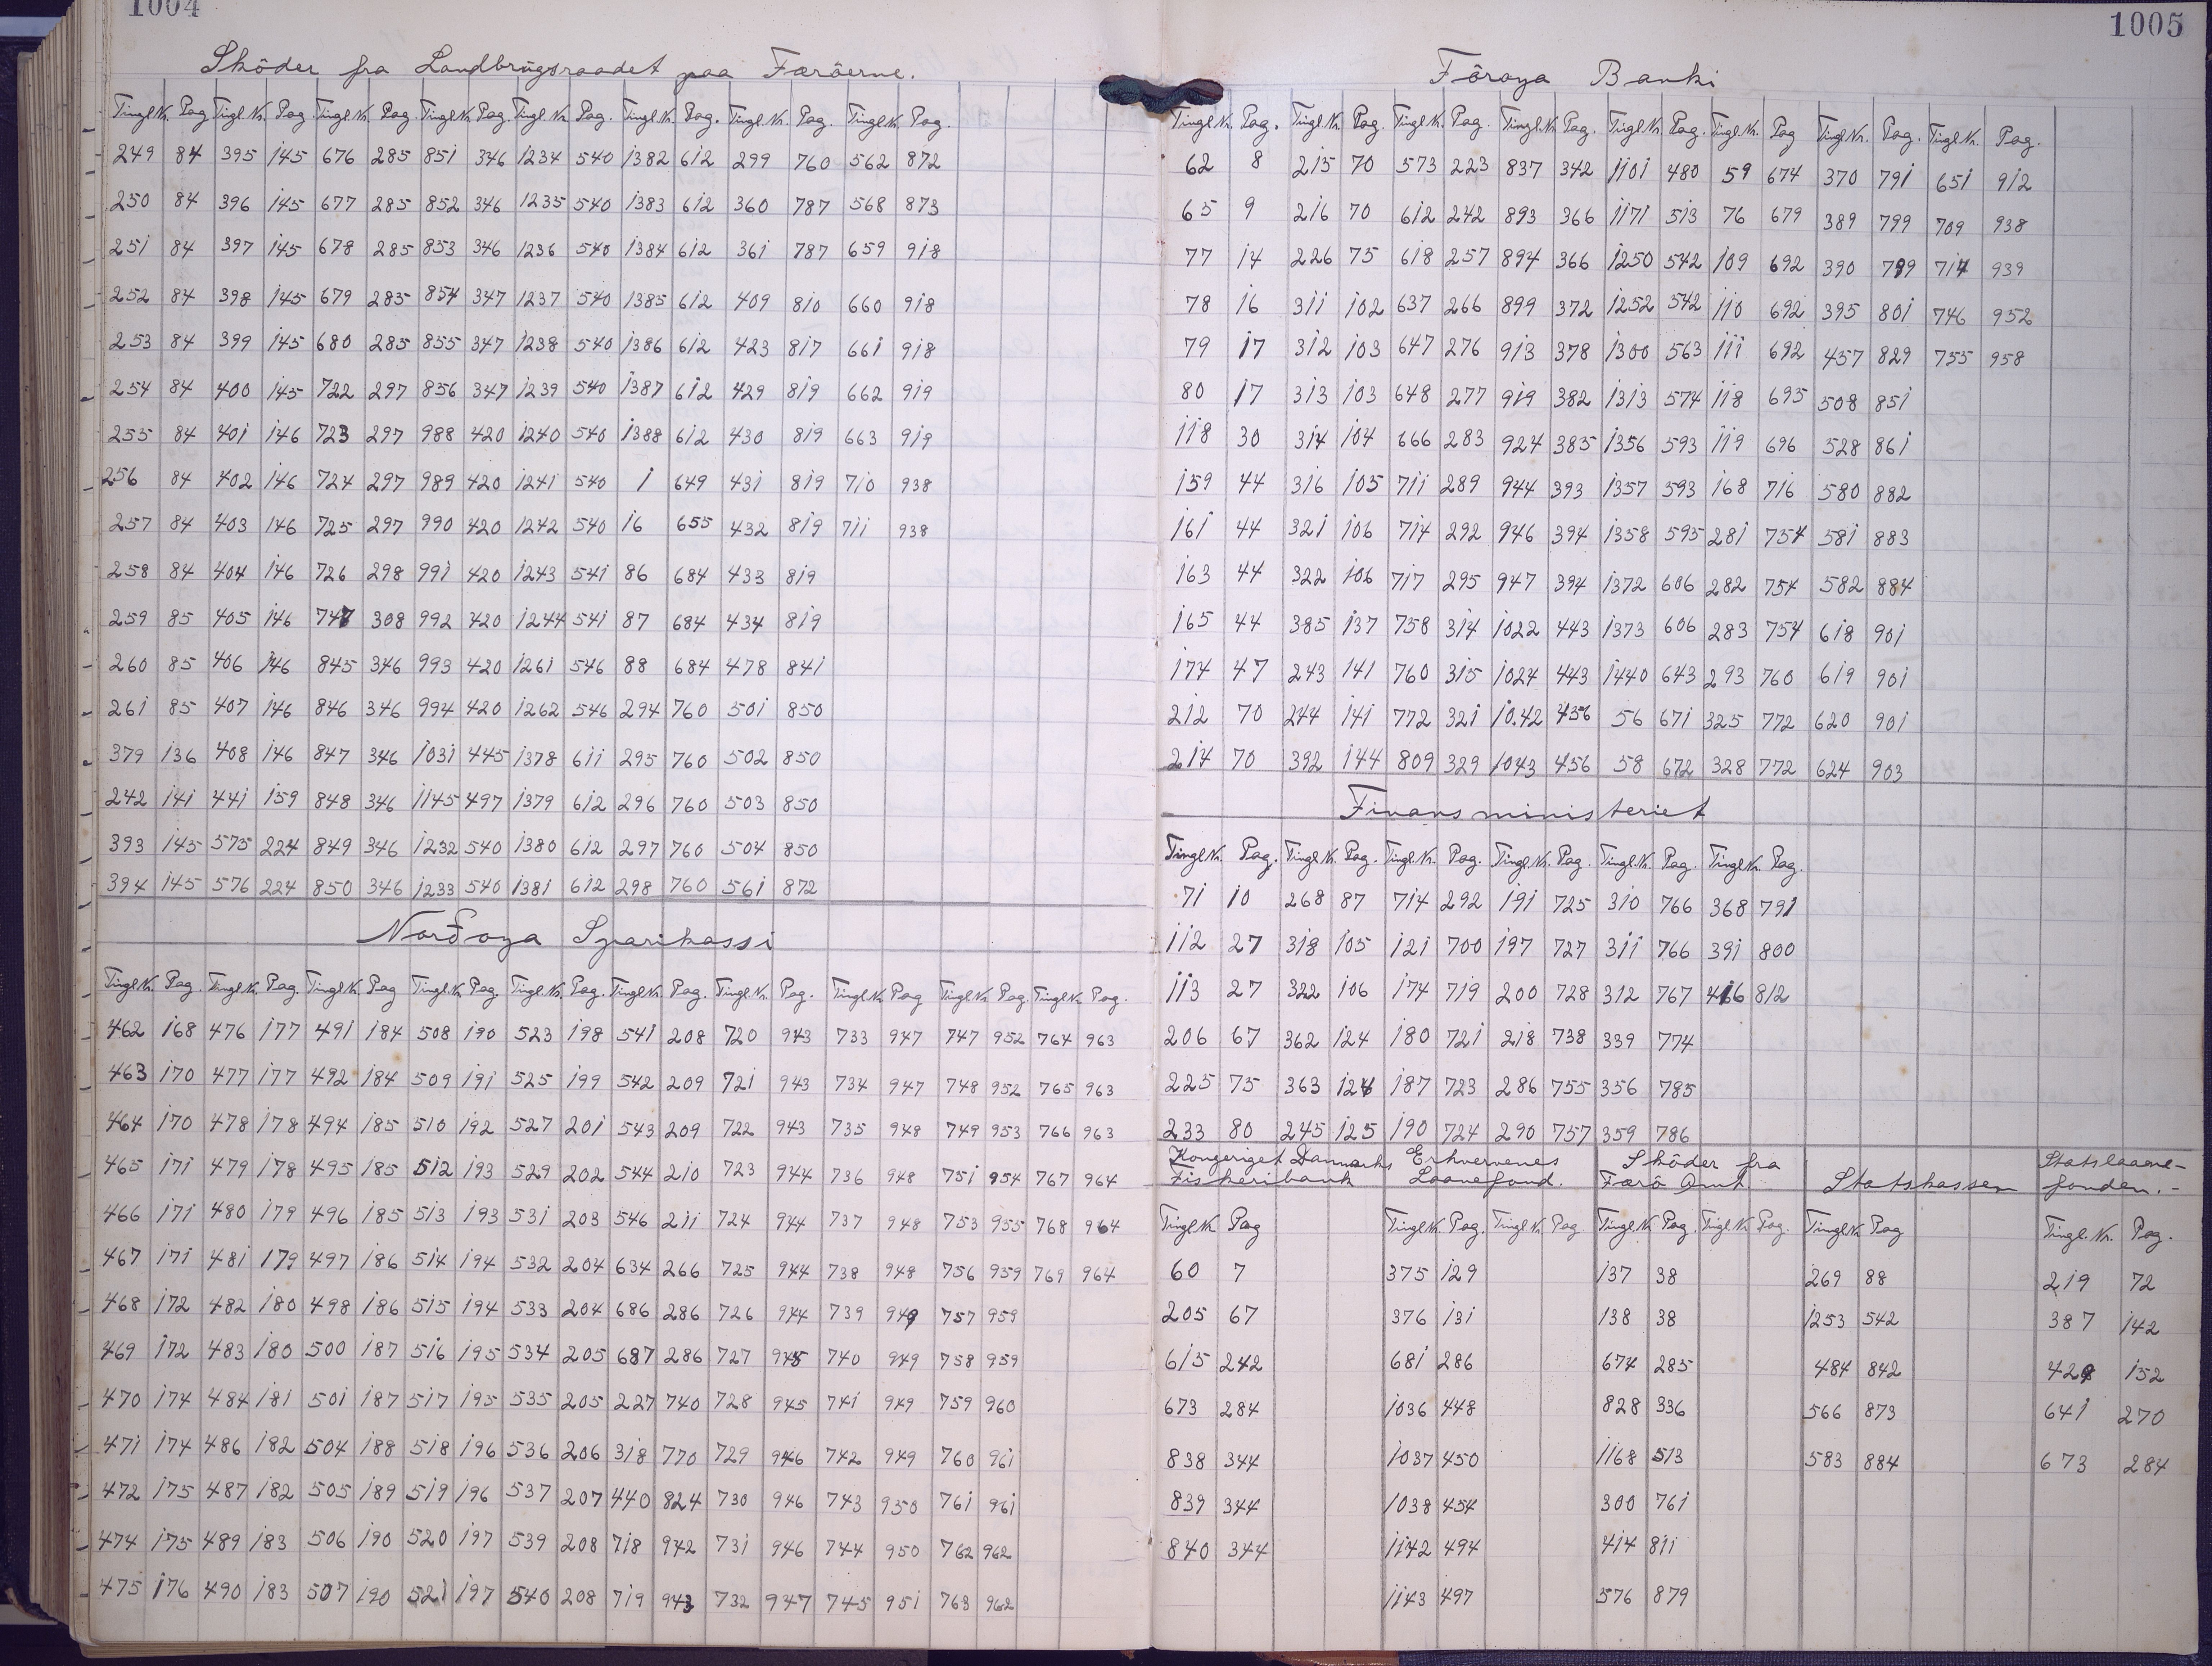 1004
Skôder fra Landbrugsraadet paa Færôerne.
Tingl Nr. Pag Tingl Nr. Pag Tingl Nr. Pag Tingl Nr. Pag. Tingl Nr. Pag. Tingl Nr. Pag. Tingl Nr. Pag. Tingl Nr. Pag.
249 84 395 145 676 285 851 346 1234 540 1382 612 299 760 562 872
250 84 396 145 677 285 852 346 1235 540 1383 612 360 787 568 873
251 84 397 145 678 285 853 346 1236 540 1384 612 361 787 659 918
252 84 398 145 679 285 854 347 1237 540 1385 612 409 810 660 918
253 84 399 145 680 285 855 347 1238 540 1386 612 423 817 661 918
254 84 400 145 722 297 856 347 1239 540 1387 612 429 819 662 919
255 84 401 146 723 297 988 420 1240 540 1388 612 430 819 663 919
256 84 402 146 724 297 989 420 1241 540 1 649 431 819 710 938
257 84 403 146 725 297 990 420 1242 540 16 655 432 819 711 938
258 84 404 146 726 298 991 420 1243 541 86 684 433 819
259 85 405 146 747 308 992 420 1244 541 87 684 434 819
260 85 406 146 845 346 993 420 1261 546 88 684 478 841
261 85 407 146 846 346 994 420 1262 546 294 760 501 850
379 136 408 146 847 346 1031 445 1378 611 295 760 502 850
242 141 441 159 848 346 1145 497 1379 612 296 760 503 850
393 145 575 224 849 346 1232 540 1380 612 297 760 504 850
394 145 576 224 850 346 1233 540 1381 612 298 760 561 872
Norðoya Sparikassi
Tingl Nr. Pag. Tingl Nr. Pag. Tingl Nr. Pag Tingl Nr. Pag. Tingl Nr. Pag. Tingl Nr. Pag. Tingl Nr. Pag. Tingl Nr. Pag Tingl Nr. Pag. Tingl Nr. Pag.
462 168 476 177 491 184 508 190 523 198 541 208 720 943 733 947 747 952 764 963
463 170 477 177 492 184 509 191 525 199 542 209 721 943 734 947 748 952 765 963
464 170 478 178 494 185 510 192 527 201 543 209 722 943 735 948 749 953 766 963
465 171 479 178 495 185 512 193 529 202 544 210 723 944 736 948 751 954 767 964
466 171 480 179 496 185 513 193 531 203 546 211 724 944 737 948 753 955 768 964
467 171 481 179 497 186 514 194 532 204 634 266 725 944 738 948 756 959 769 964
468 172 482 180 498 186 515 194 533 204 686 286 726 944 739 949 757 959
469 172 483 180 500 187 516 195 534 205 687 286 727 945 740 949 758 959
470 174 484 181 501 187 517 195 535 205 227 740 728 945 741 949 759 960
471 174 486 182 504 188 518 196 536 206 318 770 729 946 742 949 760 961
472 175 487 182 505 189 519 196 537 207 440 824 730 946 743 950 761 961
474 175 489 183 506 190 520 197 539 208 718 942 731 946 744 950 762 962
475 176 490 183 507 190 521 197 540 208 719 943 732 947 745 951 763 962
1005
Fôroya Banki
Tingl Nr. Pag. Tingl Nr. Pag. Tingl Nr. Pag. Tingl Nr. Pag. Tingl Nr. Pag. Tingl Nr. Pag Tingl Nr. Pag. Tingl Nr. Pag.
62 8 215 70 573 223 837 342 1101 480 59 674 370 791 651 912
65 9 216 70 612 242 893 366 1171 513 76 679 389 799 709 938
77 14 226 75 618 257 894 366 1250 542 109 692 390 799 714 939
78 16 311 102 637 266 899 372 1252 542 110 692 395 801 746 952
79 17 312 103 647 276 913 378 1300 563 111 692 457 829 755 958
80 17 313 103 648 277 919 382 1313 574 118 695 508 851
118 30 314 104 666 283 924 385 1356 593 119 696 528 861
159 44 316 105 711 289 944 393 1357 593 168 716 580 882
161 44 321 106 714 292 946 394 1358 595 281 754 581 883
163 44 322 106 717 295 947 394 1372 606 282 754 582 884
165 44 385 137 758 314 1022 443 1373 606 283 754 618 901
174 47 243 141 760 315 1024 443 1440 643 293 760 619 901
212 70 244 141 772 321 10.42 456 56 671 325 772 620 901
214 70 392 144 809 329 1043 456 58 672 328 772 624 903
Finansministeriet
Tingl Nr. Pag. Tingl Nr. Pag. Tingl Nr. Pag. Tingl Nr. Pag. Tingl Nr. Pag. Tingl Nr. Pag.
71 10 268 87 714 292 191 725 310 766 368 791
112 27 318 105 121 700 197 727 311 766 391 800
113 27 322 106 174 719 200 728 312 767 416 812
206 67 362 124 180 721 218 738 339 774
225 75 363 124 187 723 286 755 356 785
233 80 245 125 190 724 290 757 359 786
Kongeriget Danmarks Erhvervenes Skôder fra Statslaane-
Fiskeribank Laanefond. Færô Amt. Statskassen fonden.-
Tingl Nr. Pag Tingl Nr. Pag. Tingl Nr. Pag Tingl Nr. Pag. Tingl Nr. Pag. Tingl Nr. Pag Tingl. Nr. Pag.
60 7 375 129 137 38 269 88 219 72
205 67 376 131 138 38 1253 542 387 142
615 242 681 286 674 285 484 842 428 152
673 284 1036 448 828 336 566 873 641 270
838 344 1037 450 1168 513 583 884 673 284
839 344 1038 454 300 761
840 344 1142 494 414 811
1143 497 576 879